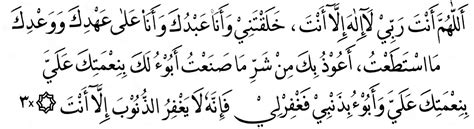 اَللّٰهُمَّ أَنْتَ رَبِّيْ لَآ إِلٰهَ إِلَّآ أَنْتَ ، خَلَقْتَنِيْ وَأَنَا عَبْدُكَ وَأَنَا عَلٰى عَهْدِكَ وَوَعْدِكَ
مَا اسْتَطَعْتُ ، أَعُوْذُ بِكَ مِنْ شَرِّ مَا صَنَعْتُ أَبُوْءُ لَكَ بِنِعْمَتِكَ عَلَيَّ
بِنِعْمَتِكَ عَلَيَّ وَأَبُوْءُ بِذَنْبِيْ فَغْفِرْلِيْ فَإِنَّهُ لَا يَغْفِرُ الذُّنُوْبَ إِلَّآ أَنْتَ ۞ ٣×